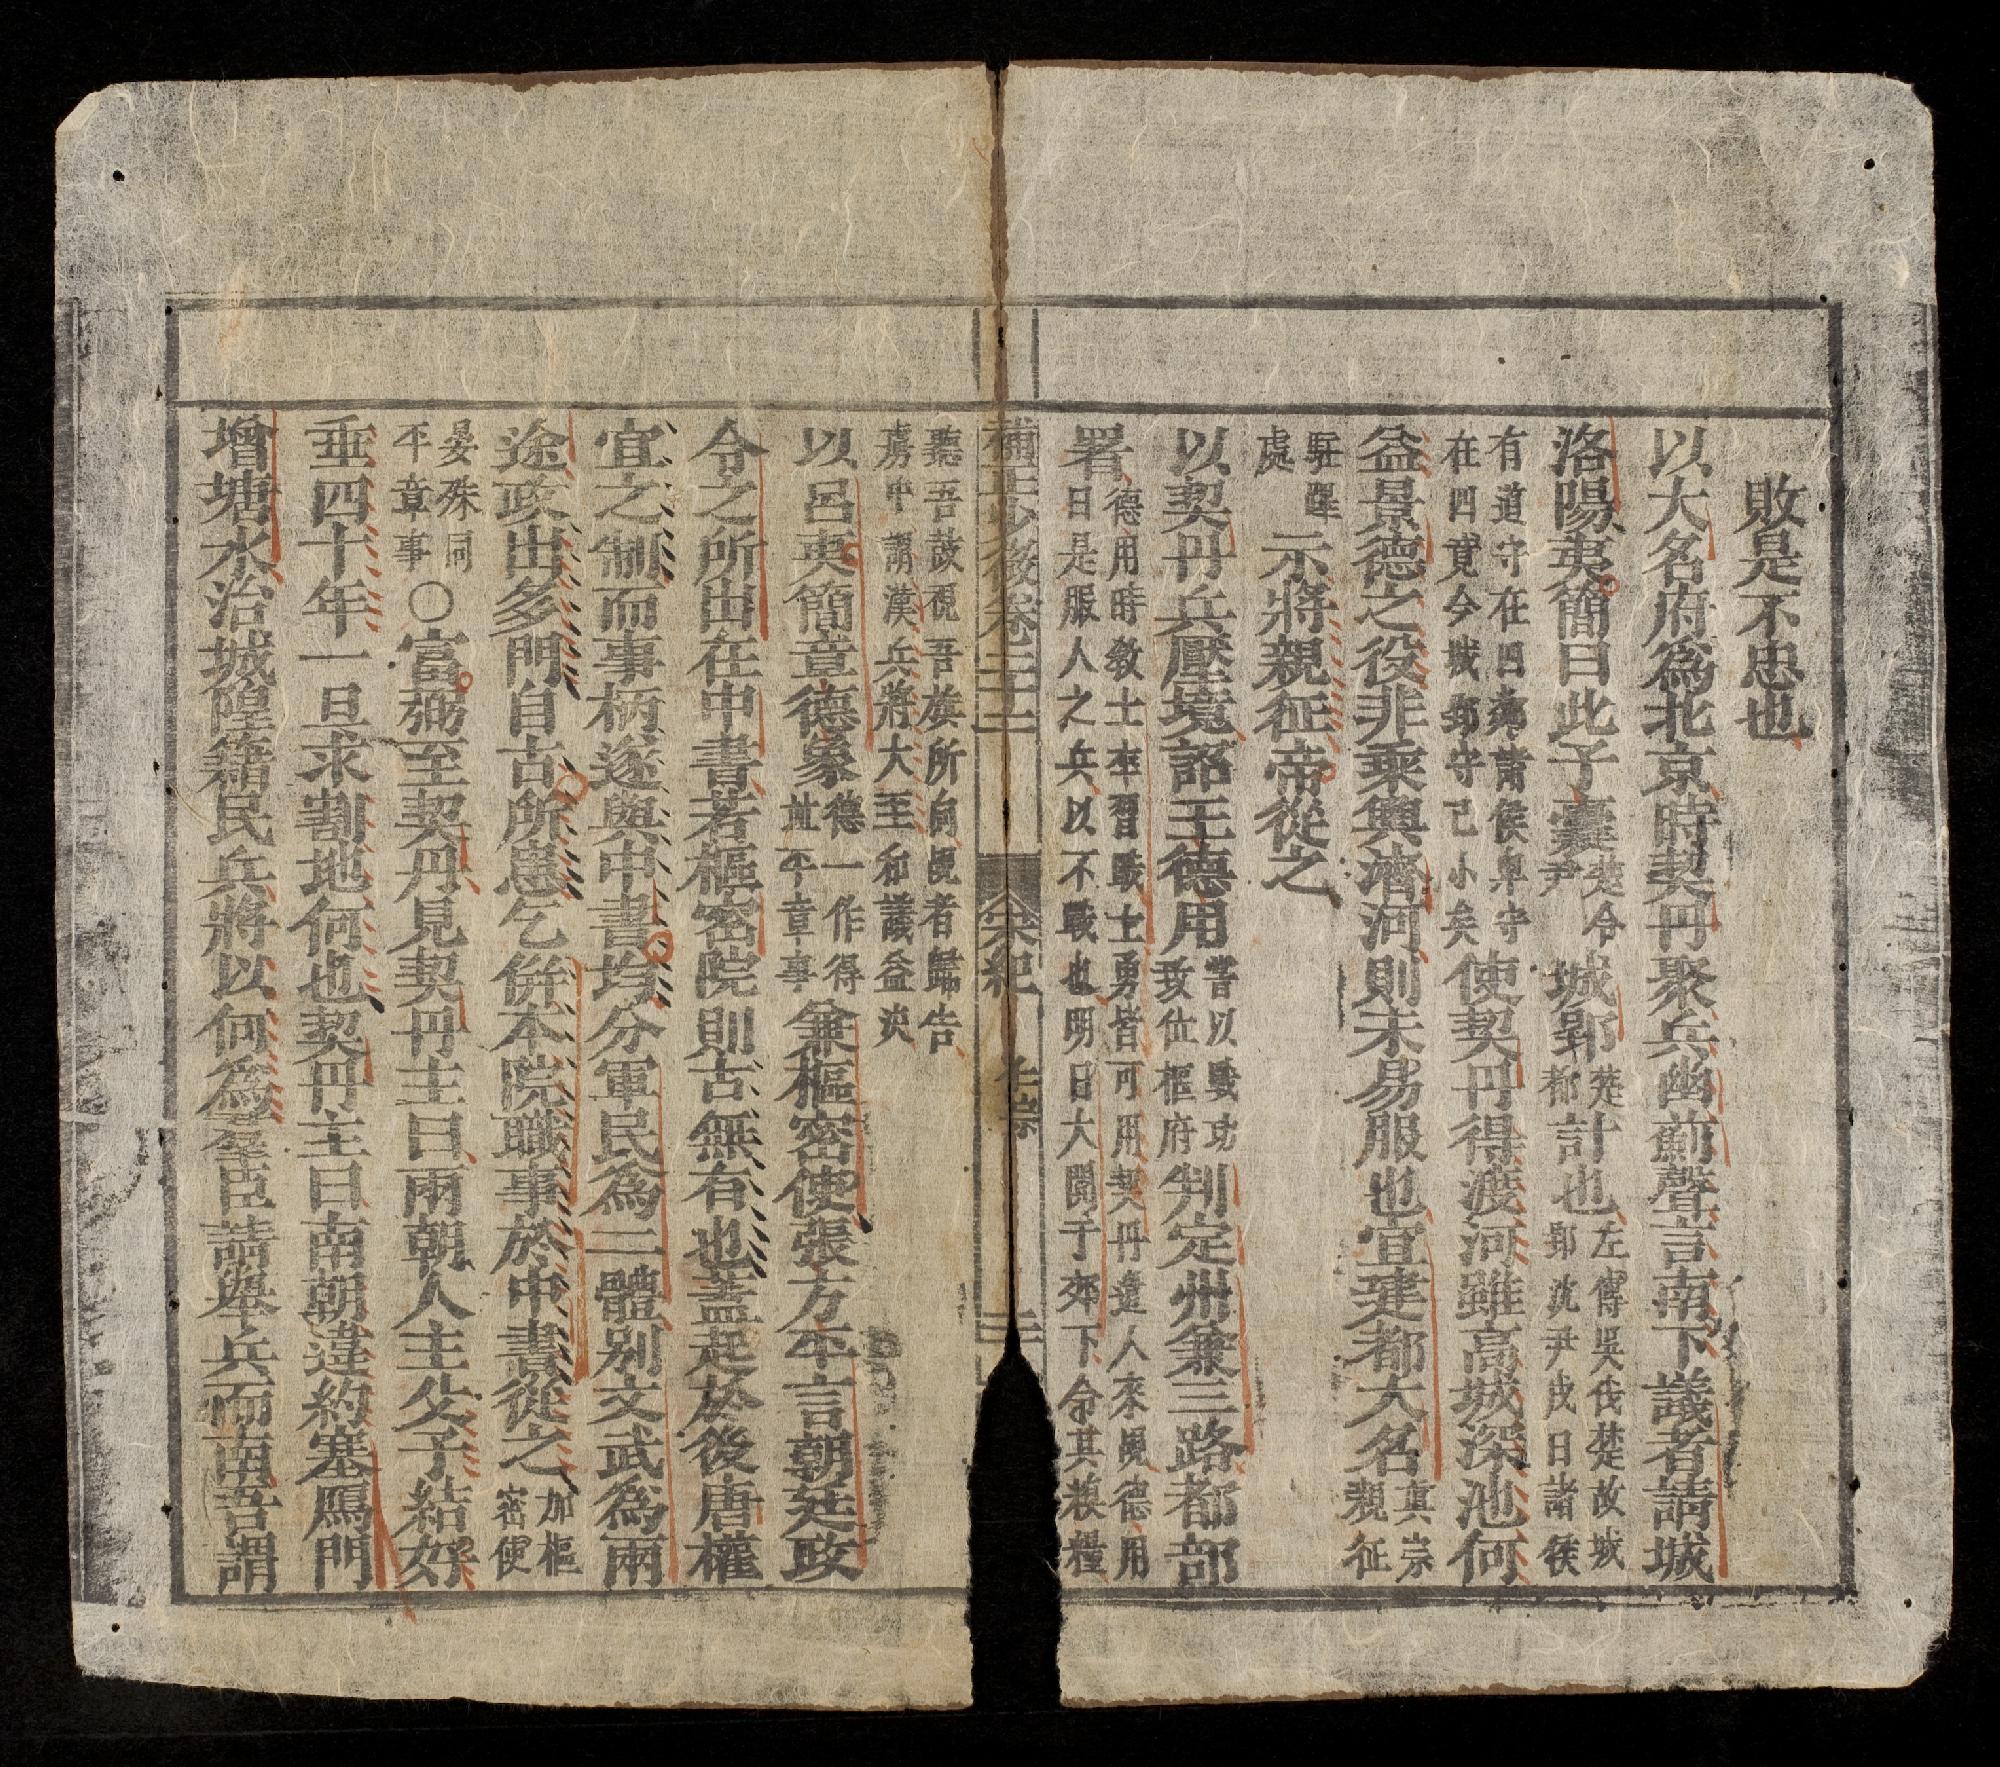 敗是不忠也
以大名府爲北京時契丹聚兵幽薊聲言南下議者請城
洛陽夷簡曰此子囊楚令尹城郢楚都計也左傳吳伐楚故城郢沈尹戌曰諸侯
有道守在四鄰諸侯卑守在四竟今城郢守已小矣使契丹得渡河雖高城深池何
益景德之役非乘輿濟河則未易服也宜建都大名真宗親征
駐蹕處示將親征帝從之
以契丹兵壓境詔王德用嘗以戰功致位樞府判定州兼三路都部
署德用時敎士卒習戰士勇皆可用契丹遣人來覘德用曰是服人之兵以不戰也明日大閱于郊下令其糗糧
聽吾鼓視吾旗所向覘者歸告虜中謂漢兵將大至和議益決
以呂夷簡章德象德一作得並平章事兼樞密使張方平言朝廷政
令之所出在中書若樞密院則古無有也蓋起於後唐權
宜之制而事柄遂與中書均分軍民爲二體別文武爲兩
途政出多門自古所患乞併本院職事於中書從之加樞密使
晏殊同平章事○富弼至契丹見契丹主曰兩朝人主父子結好
垂四十年一旦求割地何也契丹主曰南朝違約塞鴈門
增塘水治城隍籍民兵將以何爲羣臣請舉兵而南吾謂